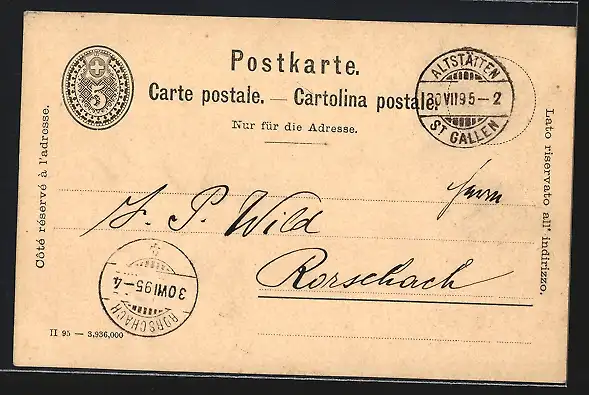 5
Postkarte.
Carte postale. — Cartolina postale.
Nur für die Adresse.
ALTSTÄTTEN
30 VII 95 – 2
ST GALLEN
Côté réservé à l'adresse.
Lato riservato all' indirizzo.
Herrn
J. P. Wild
Rorschach
30 VII 95 – 4
RORSCHACH
II 95 — 3,936,000